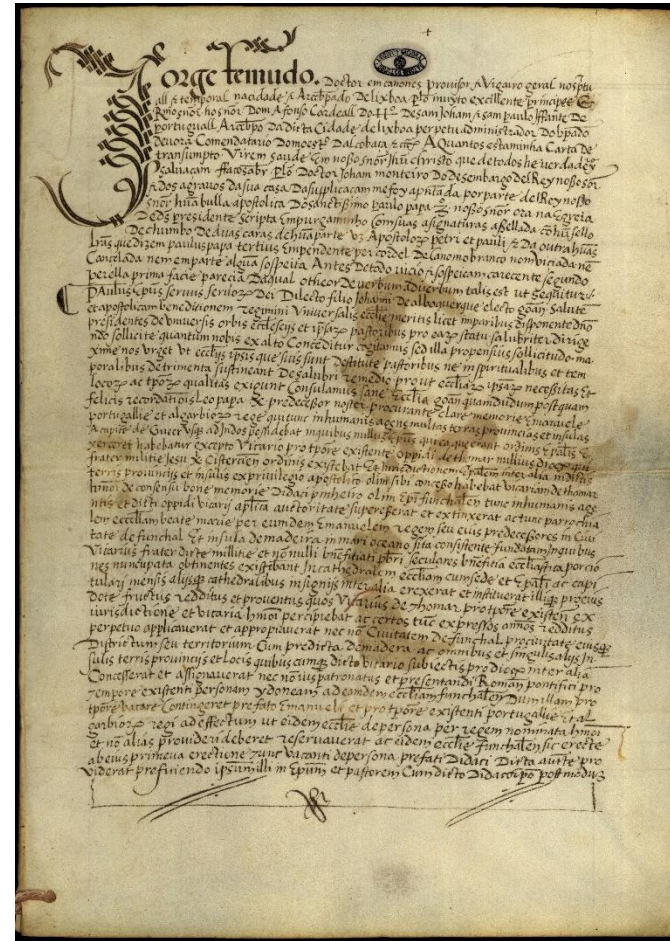 Jorge temudo. Doctor em canones provisor & vigairo geral no spũ
all & temporal na cidade & Arcebpado De lixboa p lo muyto excellente principe &
Rmo snor ho snor Dom Afonso Cardeall Do Desam Joham & sam paulo Iffante de
portuguall Arcebpo Da Dita Cidade de lixboa perpetu administrador Do bpado
devora Comendatario Do moesro Dalcobaça & A Quantos esta minha Carta de
transumpto Virem saude Em nosso snor Jhu Christo que de todos he verdadeyra
salvaçam ffaco saber p lo Doctor Joham monteiro Do desembargo del Rey nosso snor
& dos agravos da sua casa Da supplicacam me foy apñtada por parte del Rey nosso
snor hua bulla apostolica Do santissimo paulo papa nosso snor ora na Egreia
De ds presidente Scripta Em purgaminho Com suas asignaturas asellada co hu sello
De chumbo De duas caras de hua parte Apostolor petri et pauli & Da outra huas
lras que dizem paulus papa tertius Empendente per cordel De lanomo branco nom viciada ne
Cancelada nem em parte algua sospeita Antes De todo vicio & sospeicam carecente segundo
per ella prima facie parecia Da qual ho theor de verbum ad verbum talis est ut sequitur
Paulus Epus servus servor Dei Dilecto filio Johanni de albuquerque electo goan Salute
et apostolicam benedictionem regimini Universalis ecclie meritis licet imparibus disponente dno
presidentes de universis orbis ecclesiis et ipsar pastoribus pro ear statu salubriter dirige
ndo sollicite quantum nobis ex alto Conceditur cogitamus sed illa propensius sollicitudo ma
xime nos urget ut ecclijs ipsis que suis sunt destitute pastoribus ne in spiritualibus et tem
poralibus detrimenta sustineant De salubri remedio prout ecclar ipsar necessitas et
locor ac tpor qualitas exigunt Consulamus Sane Ecclia goan quam dudum postquam
felicis recordationis leo papa X predecessor noster procurante clare memorie Emanuele
portugallie et algarbior rege qui tunc in humanis agens multas terras provincias et insulas
A capite de usque ad Indos possidebat in quibus nullus
xerceret habebatur excepto Vicario pro tpore existente oppidi de thomar nullius dioc qui
frater militie Jesu Cistercien ordinis existebat Et iurisdictionem inter alia in dictis
terris provincijs et insulis ex privilegio apostolico olim sibi concesso habebat vicariam de thomar
hmoi de consensu bone memorie Didaci pinheiro olim Epi funchalen tunc in humanis age
ntis et dicti oppidi vicarij aplica auctoritate supresserat et extinxerat ac tunc parrochia
lem ecclam beate marie per eundem Emanuelem regem seu eius predecessores in Civi
tate de funchal Et insula de madeira in mari oceano sita consistente fundatam in qua
Vicarius frater dicte militie et nonnulli bnfitiati pbri seculares bnfitia ecclastica porcio
nes nuncupata obtinentes existebant In cathedralem ecclam cum sede et ac capi
tulari mensis alijsque cathedralibus insignijs inter alia erexerat et instituerat illique pro eius
dote fructus redditus et proventus quos Vicarius de thomar pro tpore existen ex
iurisdictione et vicaria hmoi percipiebat ac certos tuc expressos annos redditus
perpetuo applicaverat et appropriaverat nec no Civitatem de funchal pro civitate eiusque
Districtum seu territorium Cum predicta De madera ac omnibus et singulis alijs In
sulis terris provincijs et locis quibuscumque dicto vicario subiectis pro dioc inter alia
Concesserat et assignaverat nec no ius patronatus et presentandi Roman pontifici pro
tempore existenti personam ydoneam ad eamdem ecclam funchalen Dum illam pro
tpore vacare Contingeret prefato Emanueli et pro tpore existenti portugallie Et al
garbior regi ad effectum ut eidem ecclie de persona per regem nominata hmoi
et no alias provideri deberet reservaverat ac eidem ecclie funchalen sic erecte
ab eius primeva erectione tunc vacanti de persona prefati Didaci Dicta aucte pro
viderat preficiendo ipsum illi in Epum et pastorem Cum dicto Didaco postmodu